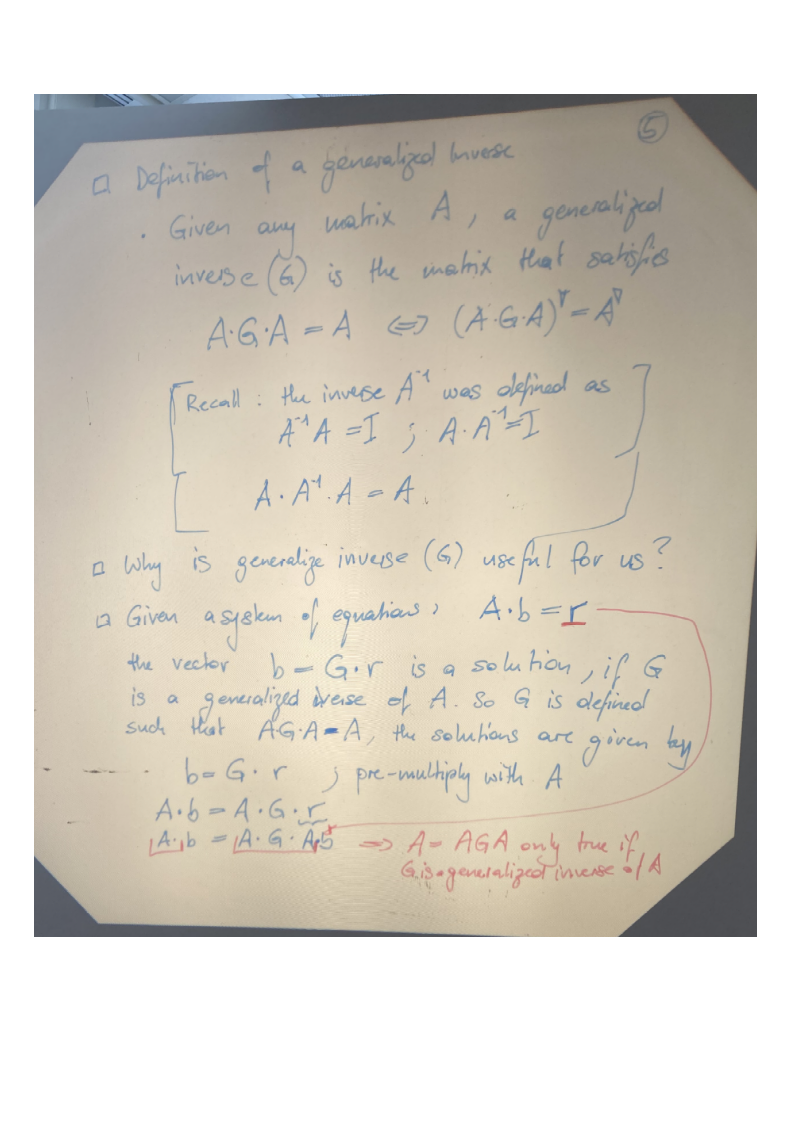 5
□ Definition of a generalized Inverse
. Given any matrix A, a generalized
inverse (G) is the matrix that satisfies
A·G·A = A <=> (A·G·A)ᵀ = Aᵀ
Recall: the inverse A⁻¹ was defined as
A⁻¹A = I ; A·A⁻¹ = I
A·A⁻¹·A = A.
□ Why is generalize inverse (G) useful for us?
□ Given a system of equations, A·b = r
the vector b = G·r is a solution, if G
is a generalized iverse of A. So G is defined
such that AG·A = A, the solutions are given by
b = G·r ; pre-multiply with A
A·b = A·G·r
A·b = A·G·A·b => A = AGA only true if
G is a generalized inverse of A